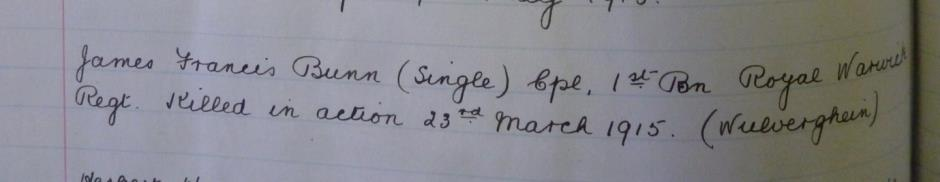 1915.
James Francis Bunn (Single) Cpl. 1st Bn Royal Warwick
Regt. Killed in action 23rd March 1915. (Wulverghein)